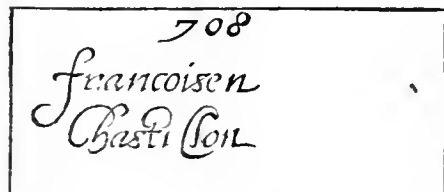 708
francoisen
Chasti llon